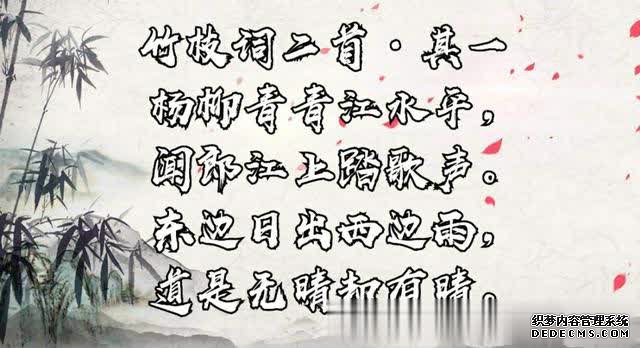 竹枝词二首·其一
杨柳青青江水平，
闻郎江上踏歌声。
东边日出西边雨，
道是无晴却有晴。
织梦内容管理系统
DEDECMS.COM